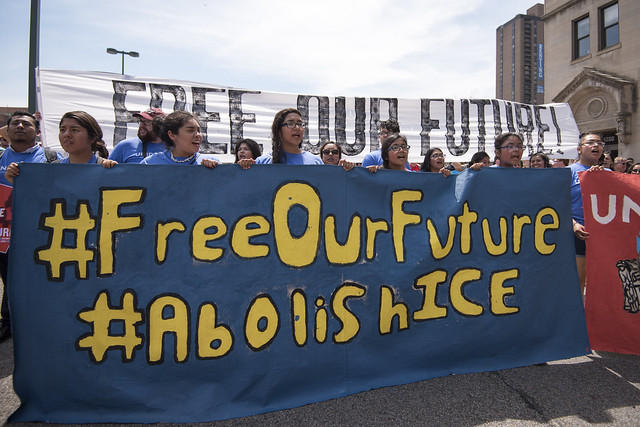 FREE OUR FUTURE!
#FreeOurFuture
#AboliShICE
UN